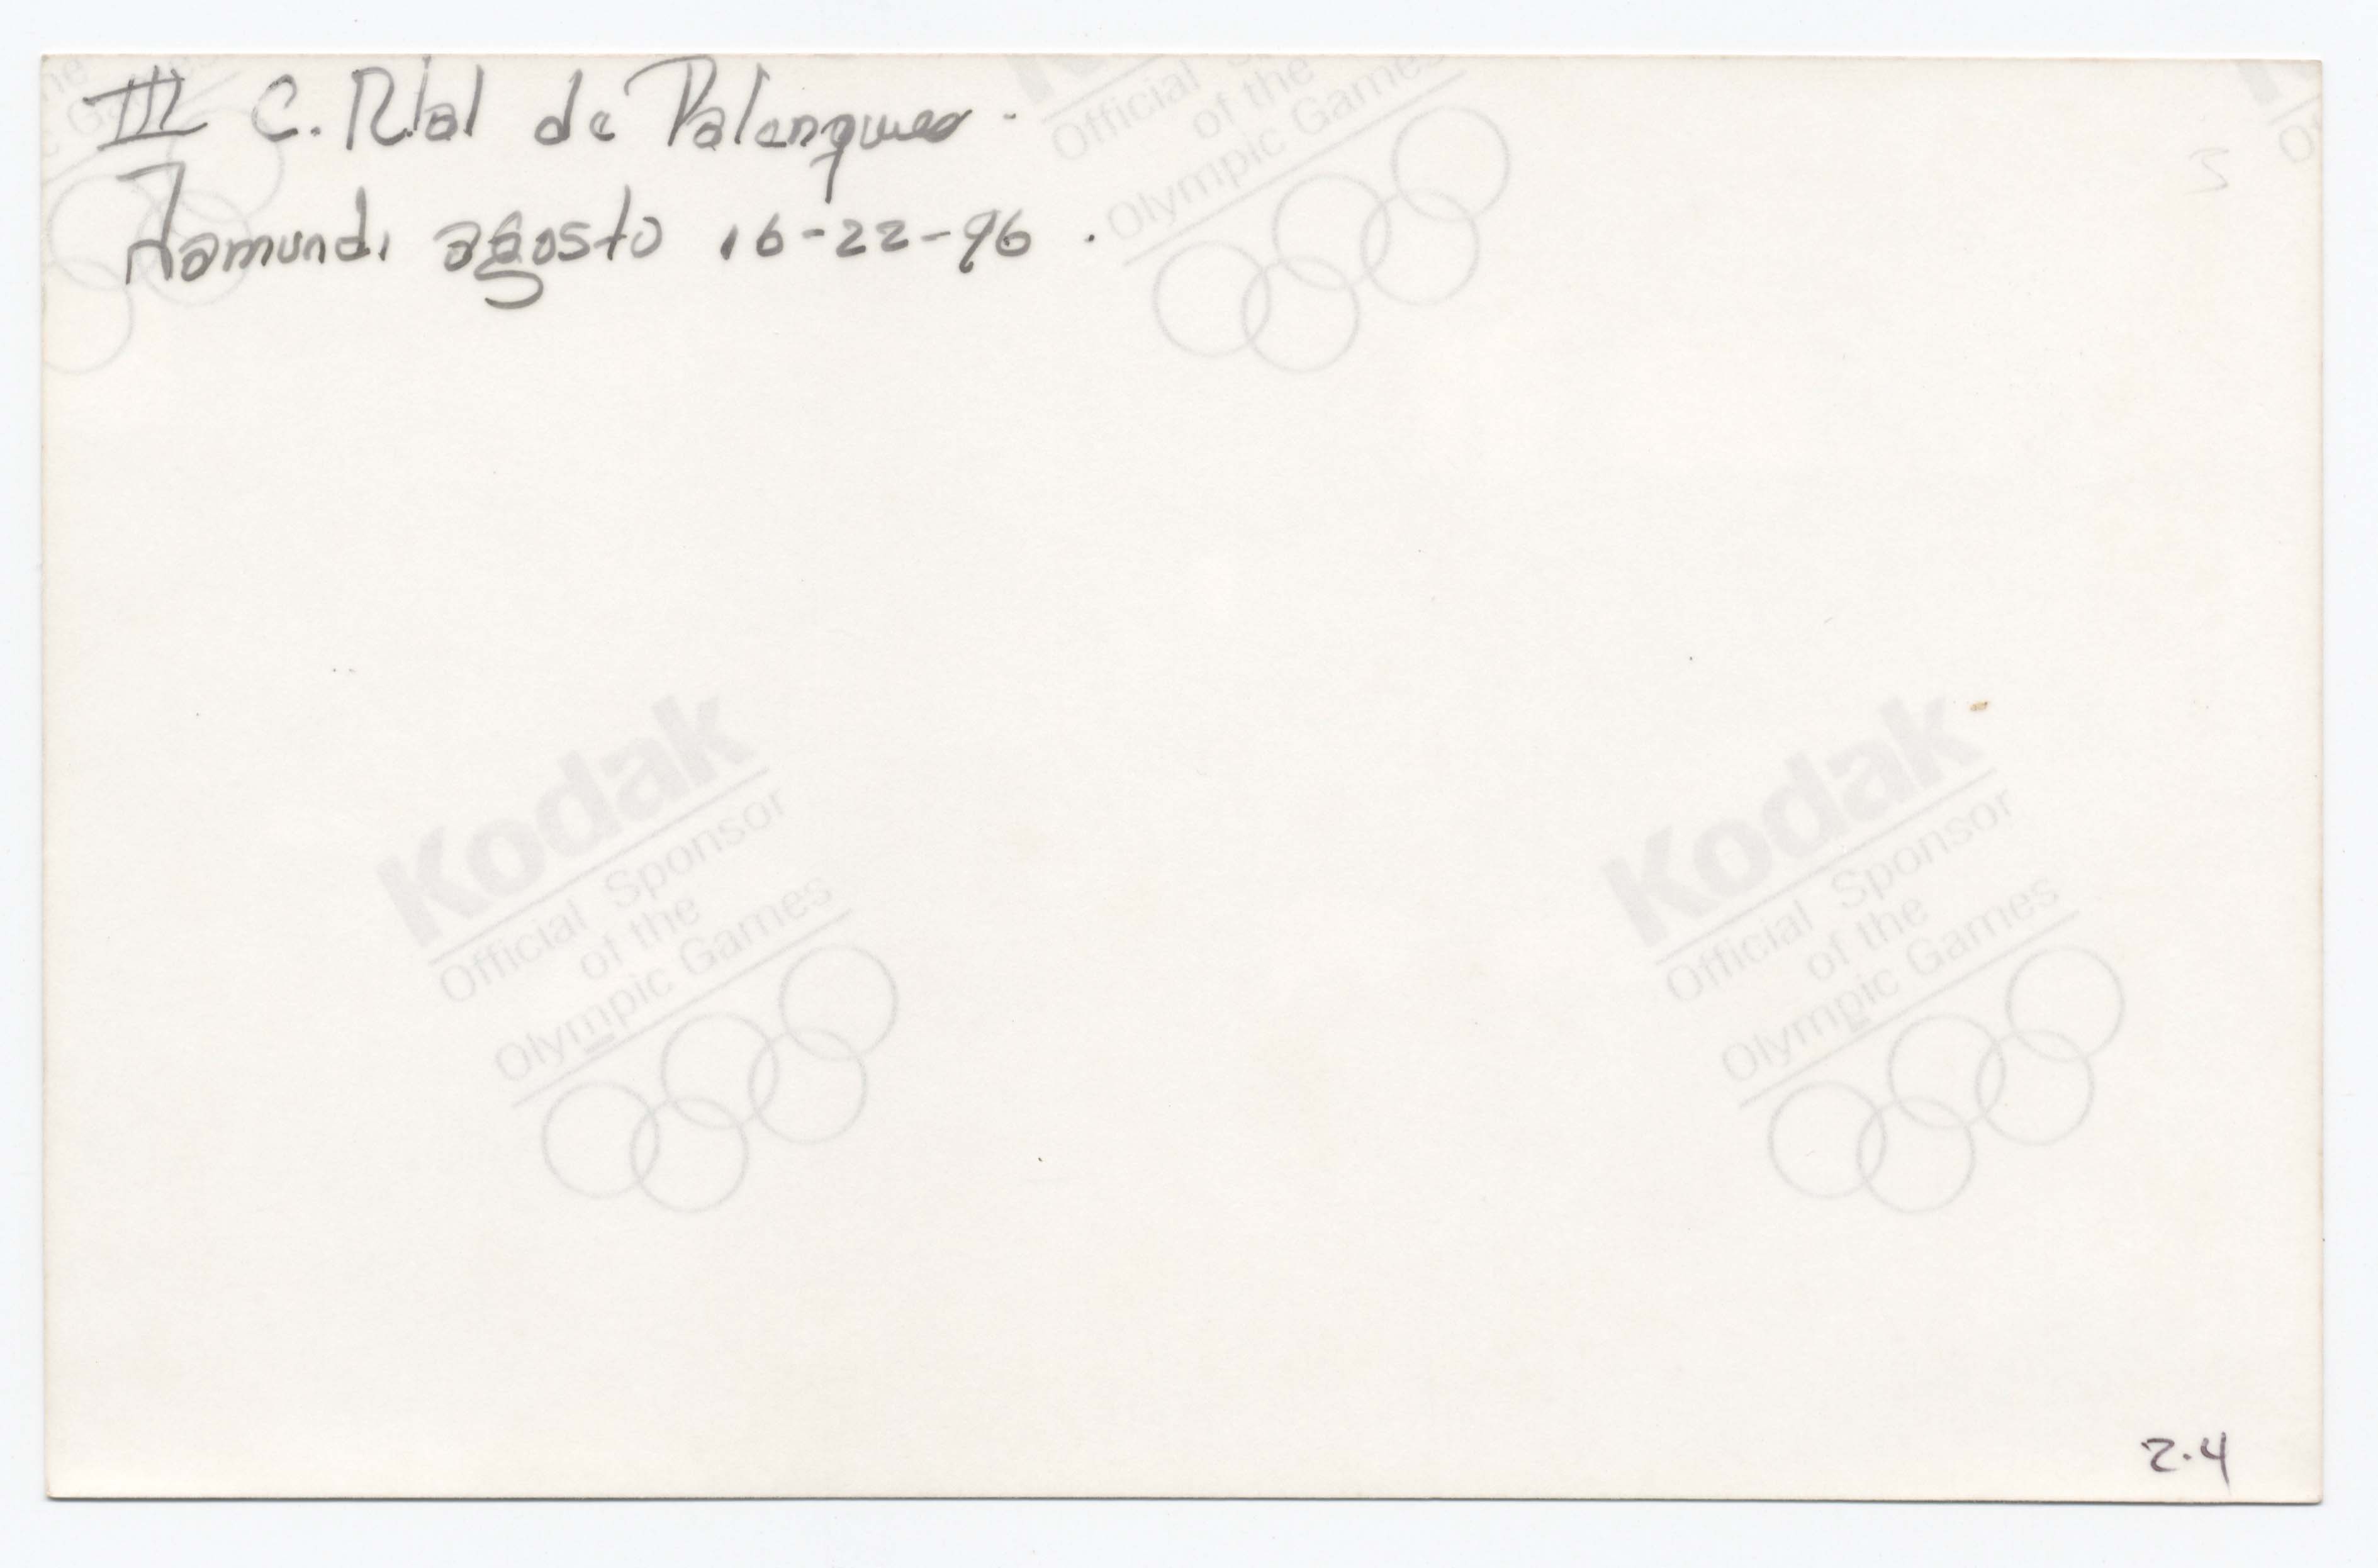 III C. Nal de Palenques.
Jamundi agosto 16-22-96.
Official
of the
Olympic Games
Kodak
Official Sponsor
of the
Olympic Games
Kodak
Official Sponsor
of the
Olympic Games
2.4